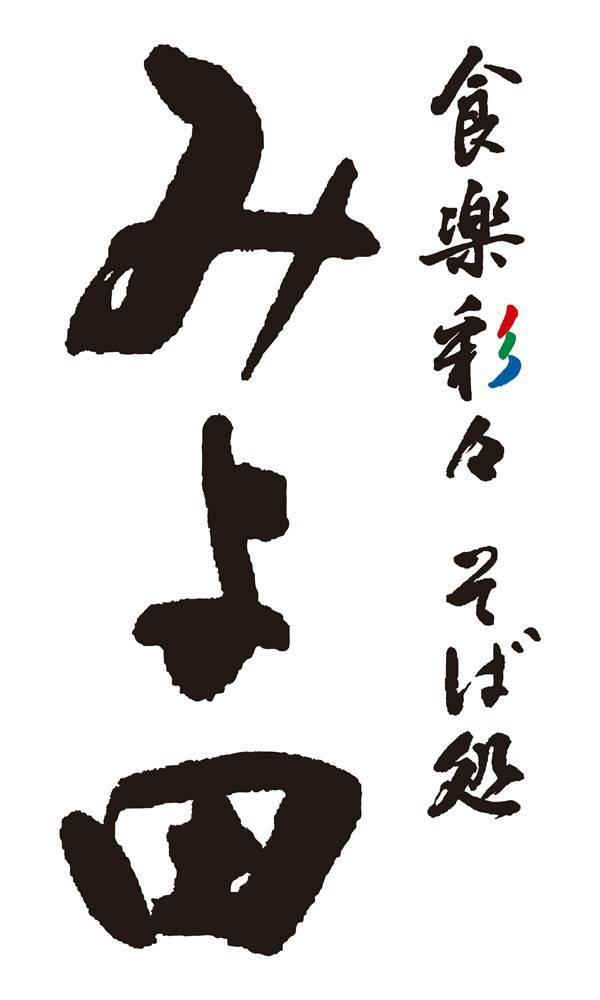 食楽彩々 そば処
みよ田